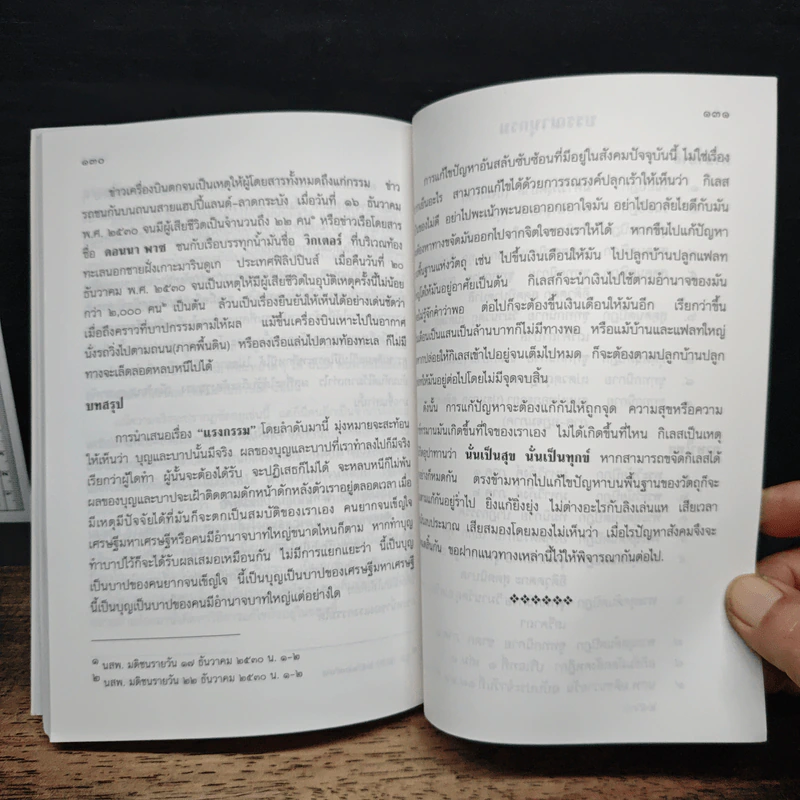 ๑๓๐
ข่าวเครื่องบินตกจนเป็นเหตุให้ผู้โดยสารทั้งหมดถึงแก่กรรม ข่าว
รถชนกันบนถนนสายแฮปปี้แลนด์-ลาดกระบัง เมื่อวันที่ ๑๖ ธันวาคม
พ.ศ. ๒๕๓๐ จนมีผู้เสียชีวิตเป็นจำนวนถึง ๒๒ คน๑ หรือข่าวเรือโดยสาร
ชื่อ ดอนนา พาซ ชนกับเรือบรรทุกน้ำมันชื่อ วิกเตอร์ ที่บริเวณท้อง
ทะเลนอกชายฝั่งเกาะมารินดูเก ประเทศฟิลิปปินส์ เมื่อคืนวันที่ ๒๐
ธันวาคม พ.ศ. ๒๕๓๐ จนเป็นเหตุให้มีผู้เสียชีวิตในอุบัติเหตุครั้งนี้ไม่น้อย
กว่า ๒,๐๐๐ คน๒ เป็นต้น ล้วนเป็นเรื่องยืนยันให้เห็นได้อย่างเด่นชัดว่า
เมื่อถึงคราวที่บาปกรรมตามให้ผล แม้ขึ้นเครื่องบินเหาะไปในอากาศ
นั่งรถวิ่งไปตามถนน(ภาคพื้นดิน) หรือลงเรือแล่นไปตามท้องทะเล ก็ไม่มี
ทางจะเล็ดลอดหลบหนีไปได้
บทสรุป
การนำเสนอเรื่อง “แรงกรรม” โดยลำดับมานี้ มุ่งหมายจะสะท้อน
ให้เห็นว่า บุญและบาปนั้นมีจริง ผลของบุญและบาปที่เราทำลงไปก็มีจริง
เรียกว่าผู้ใดทำ ผู้นั้นจะต้องได้รับ จะปฏิเสธก็ไม่ได้ จะหลบหนีก็ไม่พ้น
ผลของบุญและบาปจะเฝ้าติดตามดักหน้าดักหลังตัวเราอยู่ตลอดเวลา เมื่อ
มีเหตุมีปัจจัยได้ที่มันก็จะตกเป็นสมบัติของเราเอง คนยากจนเข็ญใจ
เศรษฐีมหาเศรษฐีหรือคนมีอำนาจบาทใหญ่ขนาดไหนก็ตาม หากทำบุญ
ทำบาปไว้ก็จะได้รับผลเสมอเหมือนกัน ไม่มีการแยกแยะว่า นี้เป็นบุญ
เป็นบาปของคนยากจนเข็ญใจ นี้เป็นบุญเป็นบาปของเศรษฐีมหาเศรษฐี
นี้เป็นบุญเป็นบาปของคนมีอำนาจบาทใหญ่แต่อย่างใด
๑ นสพ. มติชนรายวัน ๑๗ ธันวาคม ๒๕๓๐ น. ๑-๒
๒ นสพ. มติชนรายวัน ๒๒ ธันวาคม ๒๕๓๐ น. ๑-๒
๑๓๑
การแก้ไขปัญหาอันสลับซับซ้อนที่มีอยู่ในสังคมปัจจุบันนี้ ไม่ใช่เรื่อง
สามารถแก้ไขได้ด้วยการรณรงค์ปลุกเร้าให้เห็นว่า กิเลส
อย่าไปพะเน้าพะนอเอาอกเอาใจมัน อย่าไปอาลัยไยดีกับมัน
หาทางขจัดมันออกไปจากจิตใจของเราให้ได้ หากขืนไปแก้ปัญหา
พื้นฐานแห่งวัตถุ เช่น ไปขึ้นเงินเดือนให้มัน ไปปลูกบ้านปลูกแฟลท
ให้มันอยู่อาศัยเป็นต้น กิเลสก็จะนำเงินไปใช้ตามอำนาจของมัน
รู้จักคำว่าพอ ต่อไปก็จะต้องขึ้นเงินเดือนให้มันอีก เรียกว่าขึ้น
เป็นแสนเป็นล้านบาทก็ไม่มีทางพอ หรือแม้บ้านและแฟลทใหญ่
ปล่อยให้กิเลสเข้าไปอยู่จนเต็มไปหมด ก็จะต้องตามปลูกบ้านปลูก
ให้มันอยู่ต่อไปโดยไม่มีจุดจบสิ้น
ดังนั้น การแก้ปัญหาจะต้องแก้กันให้ถูกจุด ความสุขหรือความ
มันเกิดขึ้นที่ใจของเราเอง ไม่ได้เกิดขึ้นที่ไหน กิเลสเป็นเหตุ
อุปาทานว่า นั่นเป็นสุข นั่นเป็นทุกข์ หากสามารถขจัดกิเลสได้
หมดกัน ตรงข้ามหากไปแก้ไขปัญหาบนพื้นฐานของวัตถุก็จะ
แก้กันอยู่ร่ำไป ยิ่งแก้ยิ่งยุ่ง ไม่ต่างอะไรกับลิงเล่นแห เสียเวลา
งบประมาณ เสียสมองโดยมองไม่เห็นว่า เมื่อไรปัญหาสังคมจึงจะ
กัน ขอฝากแนวทางเหล่านี้ไว้ให้พิจารณากันต่อไป.